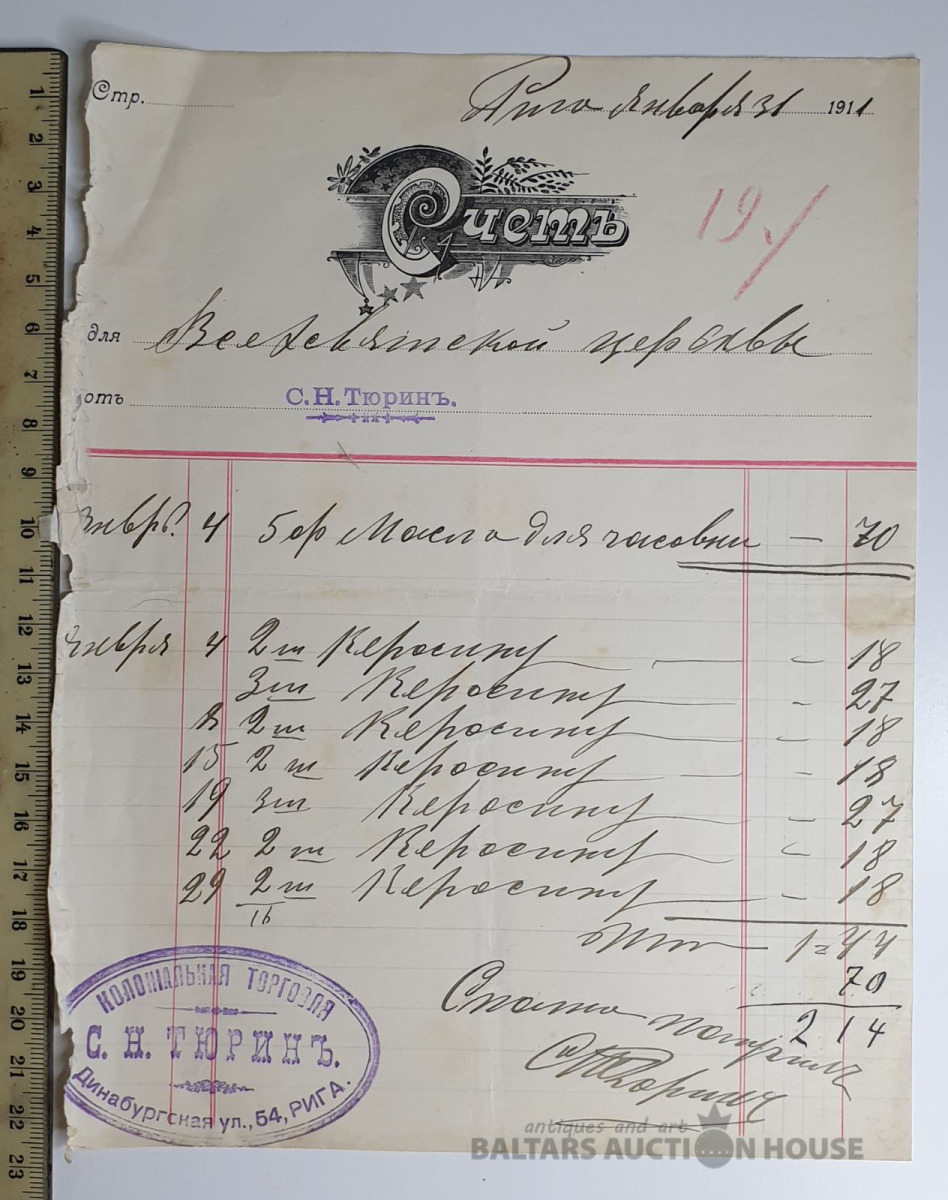 Стр.
Рига Января 31 1911
Счетъ
19
для Всехсвятской церквы
отъ С.Н.Тюринъ.
Январь 4 5 ф Масла для часовни — 70
Января 4 2 ш Керосину — 18
3 ш Керосину — 27
8 2 ш Керосину — 18
15 2 ш Керосину — 18
19 3 ш Керосину — 27
22 2 ш Керосину — 18
29 2 ш Керосину — 18
16
1=44
70
2 14
Сполна получилъ
СНТюринъ
КОЛОНІАЛЬНАЯ ТОРГОВЛЯ
С. Н. ТЮРИНЪ.
Динабургская ул., 54, РИГА.
antiques and art
BALTARS AUCTION HOUSE
1
2
3
4
5
6
7
8
9
10
11
12
13
14
15
16
17
18
19
20
21
22
23